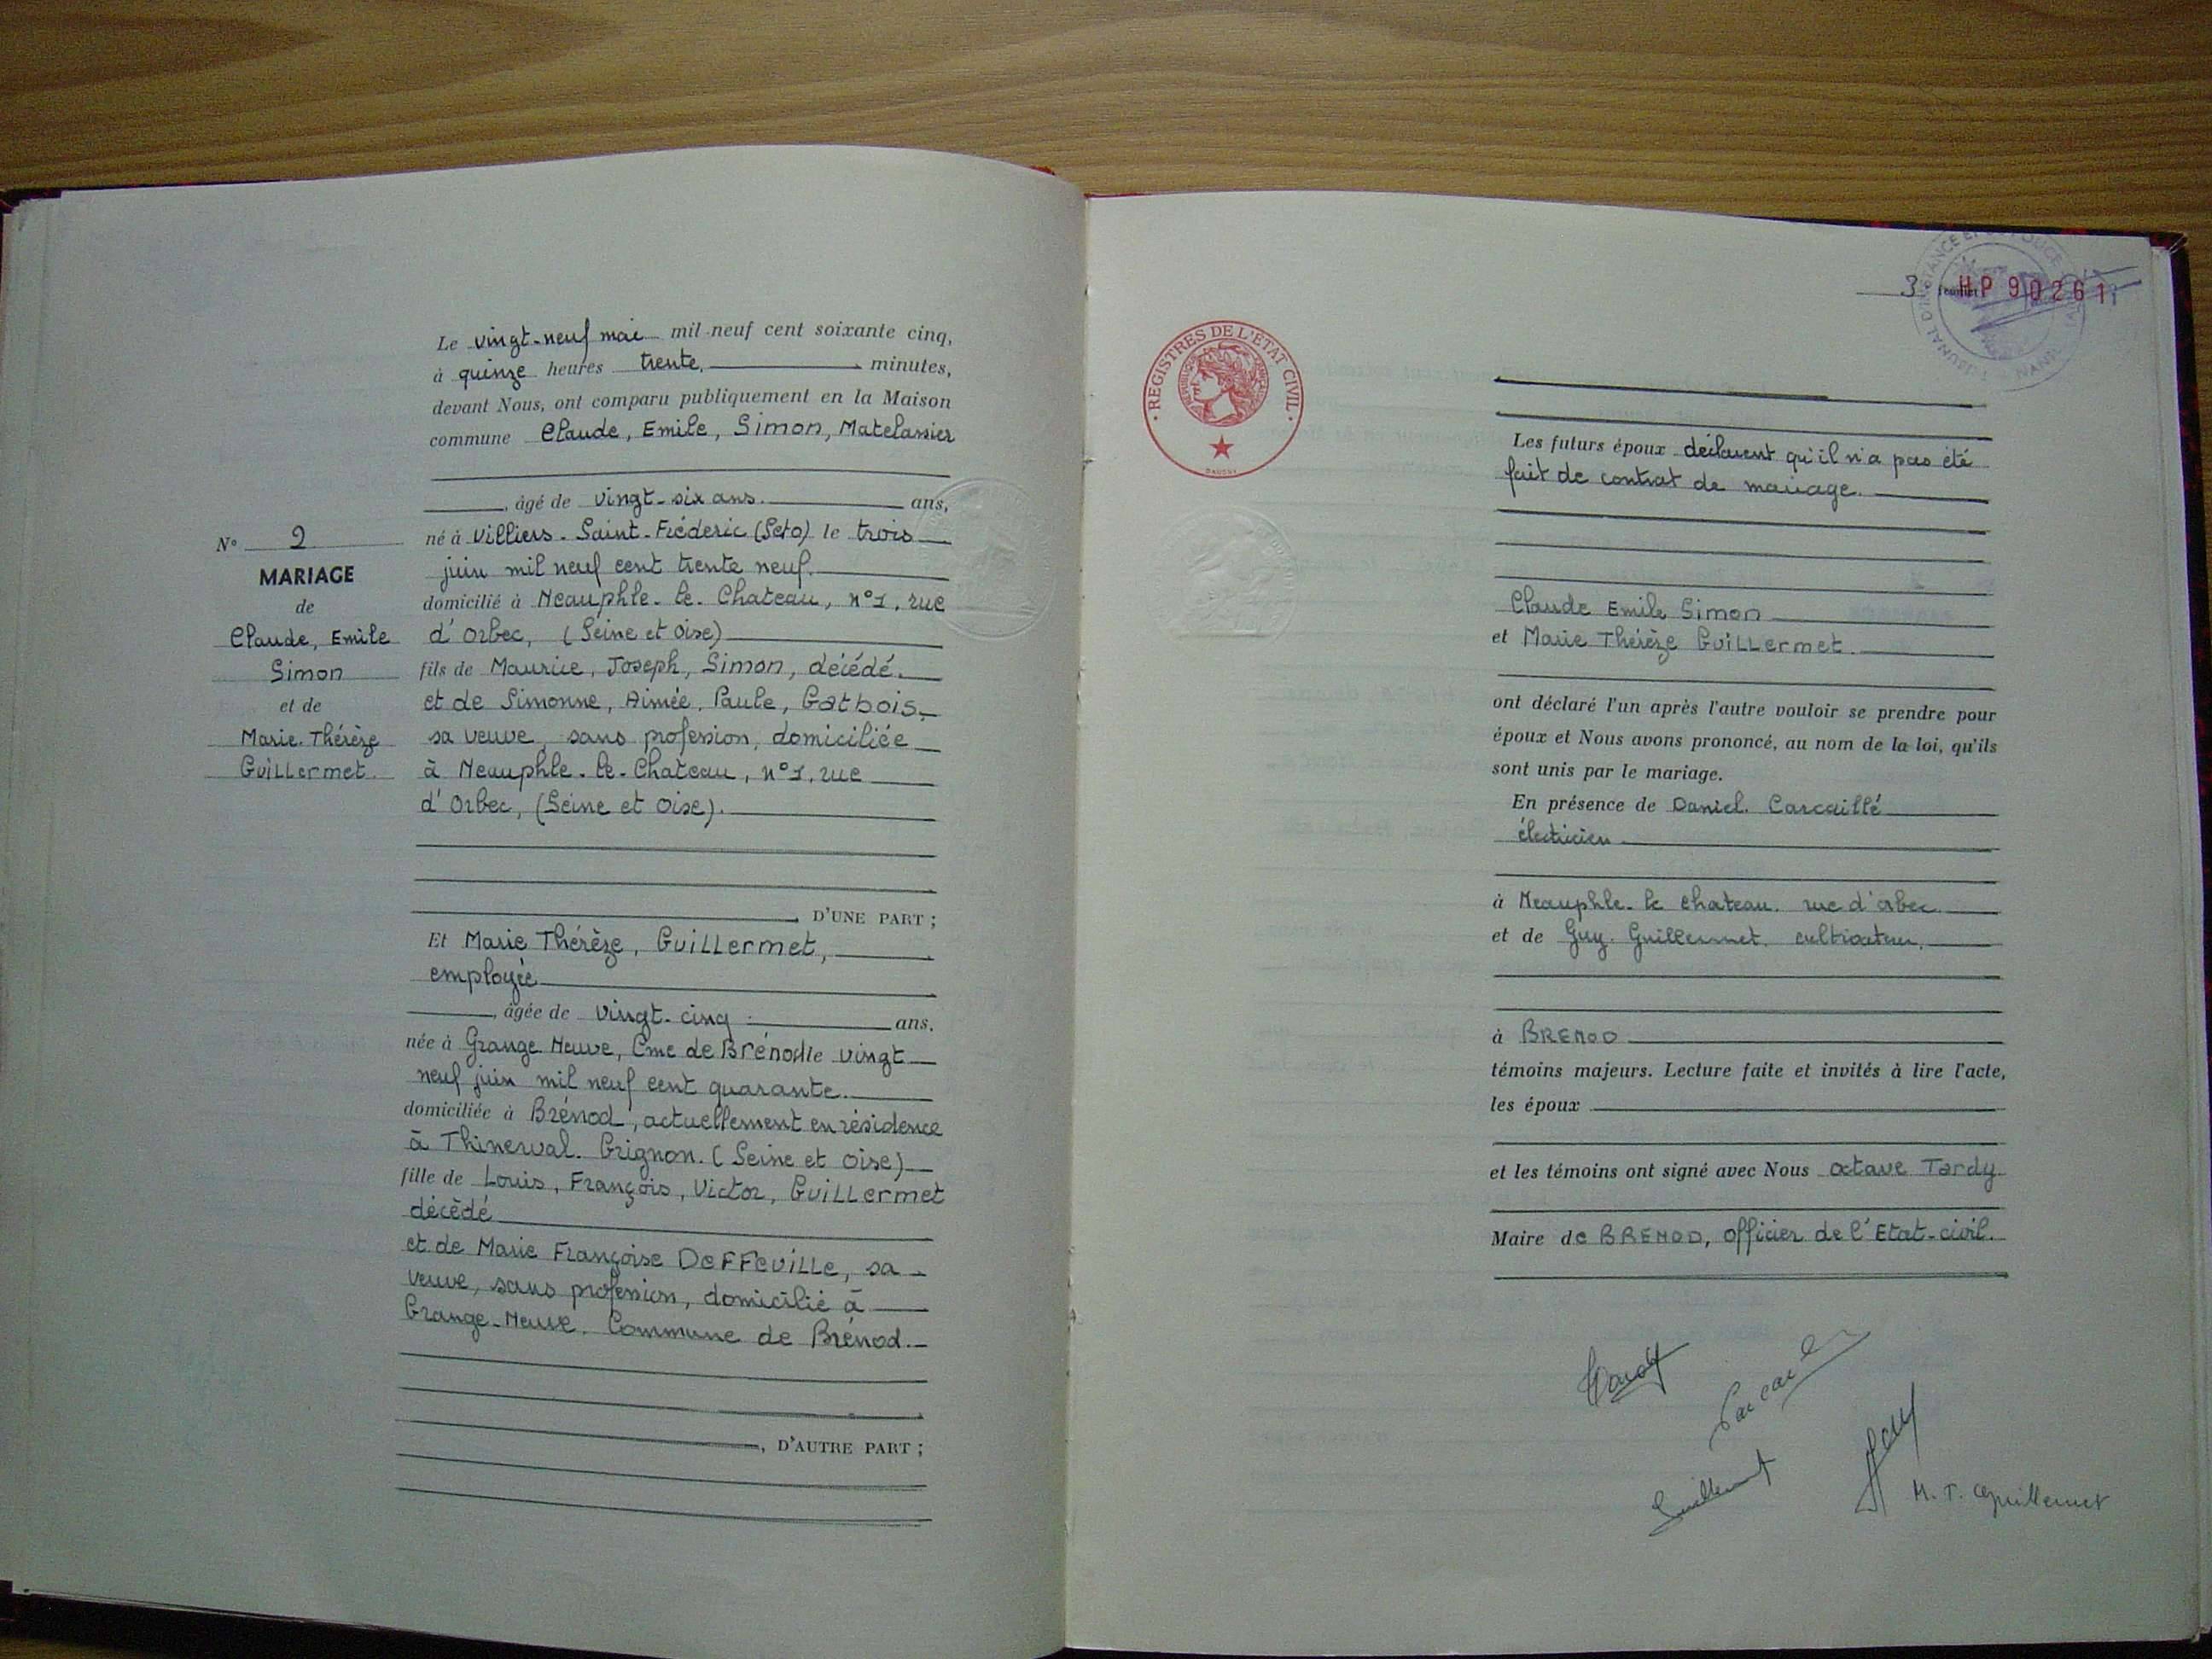 Le vingt-neuf mai mil neuf cent soixante cinq,
à quinze heures trente. minutes,
devant Nous, ont comparu publiquement en la Maison
commune Claude, Emile, Simon, Matelassier
, âgé de vingt-six ans. ans,
né à Villiers-Saint-Fréderic (SetO) le trois
juin mil neuf cent trente neuf.
domicilié à Neauphle-le-Chateau, n°1, rue
d'Orbec, (Seine et Oise)
fils de Maurice, Joseph, Simon, décédé.
et de Simonne, Aimée, Paule, Gatbois,
sa veuve, sans profession, domiciliée
à Neauphle-le-Chateau, n°1, rue
d'Orbec, (Seine et Oise).
D'UNE PART ;
Et Marie Thérèze, Guillermet,
employée
, âgée de vingt-cinq ans.
née à Grange Neuve, Cme de Brénod le vingt
neuf juin mil neuf cent quarante.
domiciliée à Brénod, actuellement en résidence
à Thinerval. Grignon. (Seine et Oise)
fille de Louis, François, Victor, Guillermet
décédé
et de Marie Françoise DeFFeuille, sa
veuve, sans profession, domicilié à
Grange-Neuve. Commune de Brénod.
, D'AUTRE PART ;
N° 2
MARIAGE
de
Claude, Emile
Simon
et de
Marie-Thérèze
Guillermet.
REGISTRES DE L'ETAT CIVIL
3 feuillet
HP 90261
Les futurs époux déclarent qu'il n'a pas été
fait de contrat de mariage.
Claude Emile Simon
et Marie Thérèze Guillermet.
ont déclaré l'un après l'autre vouloir se prendre pour
époux et Nous avons prononcé, au nom de la loi, qu'ils
sont unis par le mariage.
En présence de Daniel. Carcaillé
électricien
à Neauphle-le chateau. rue d'orbec
et de Guy. Guillermet. cultivateur.
à BRENOD
témoins majeurs. Lecture faite et invités à lire l'acte,
les époux
et les témoins ont signé avec Nous Octave Tardy
Maire de BRENOD, officier de l'Etat-civil.
Guillermet
M. T. Guillermet